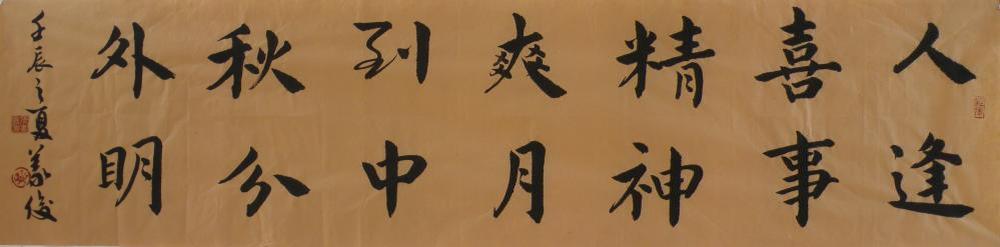 人逢
喜事
精神
爽月
到中
秋分
外明
壬辰之夏义俊